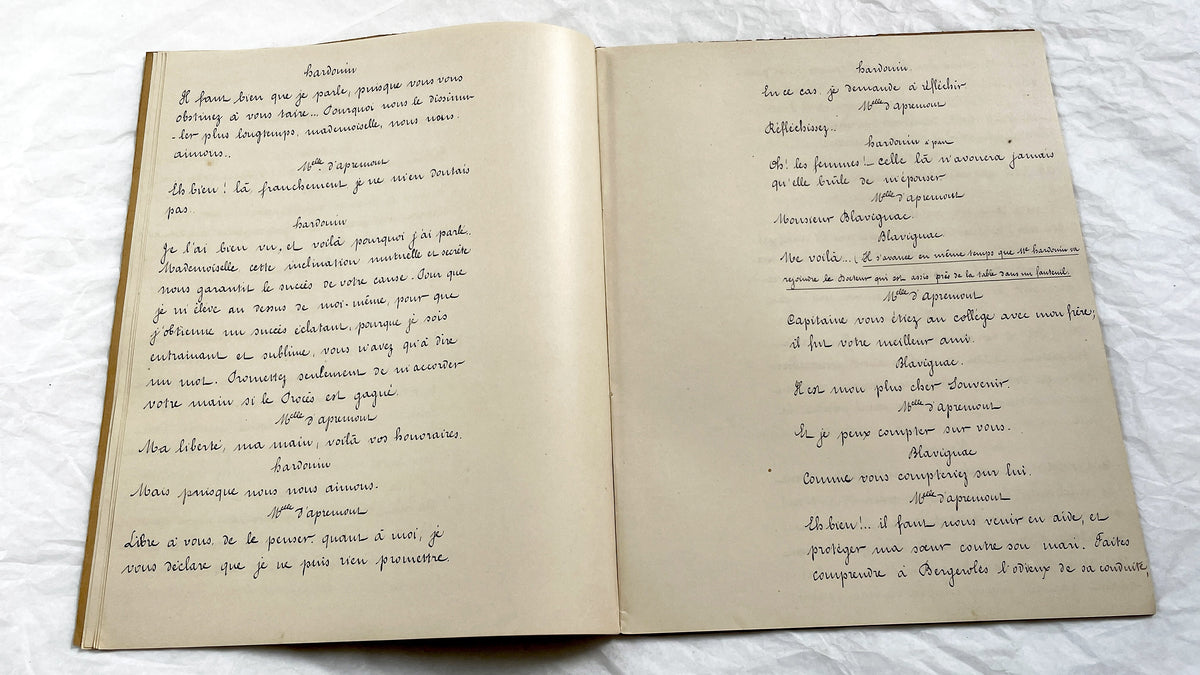 hardouin
Il faut bien que je parle, puisque vous vous
obstinez à vous taire... Pourquoi nous le dissimu-
-ler plus longtemps, mademoiselle, nous nous
aimons..
Melle d'apremont
Eh bien ! là, franchement je ne m'en doutais
pas.
hardouin
Je l'ai bien vu, et voilà pourquoi j'ai parlé.
Mademoiselle cette inclination mutuelle et secrète
nous garantit le succès de votre cause. Pour que
je m'élève au dessus de moi-même, pour que
j'obtienne un succès éclatant, pourque je sois
entrainant et sublime, vous n'avez qu'à dire
un mot. Promettez seulement de m'accorder
votre main si le Procès est gagné.
Melle d'apremont
Ma liberté, ma main, voilà vos honoraires.
hardouin
Mais puisque nous nous aimons.
Melle d'apremont
Libre à vous, de le penser, quant à moi, je
vous déclare que je ne puis rien promettre.
hardouin.
En ce cas, je demande à réfléchir
Melle d'apremont
Réfléchissez..
hardouin à part
Oh ! les femmes !_ celle là n'avouera jamais
qu'elle brûle de m'épouser
Melle d'apremont
Monsieur Blavignac.
Blavignac
Me voilà... (Il s'avance en même temps que Me hardouin va
rejoindre le Docteur qui est assis près de la table dans un fauteuil.
Melle d'apremont
Capitaine vous étiez au collège avec mon frère;
il fut votre meilleur ami.
Blavignac.
Il est mon plus cher Souvenir.
Melle d'apremont
Et je peux compter sur vous.
Blavignac
Comme vous compteriez sur lui.
Melle d'apremont
Eh bien !... il faut nous venir en aide, et
protéger ma sœur contre son mari. Faites
comprendre à Bergerolles l'odieux de sa conduite,